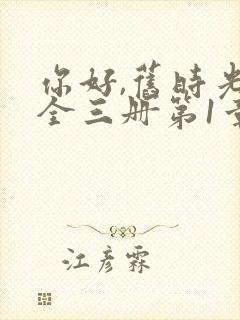 你好,旧时光
全三册第1章
江彦霖